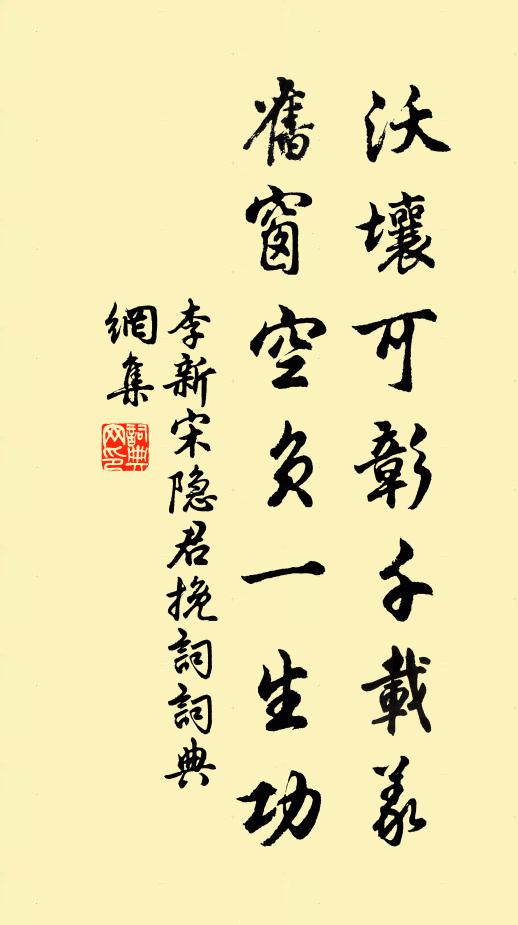 沃壤可彰千載義
舊窗空負一生功
李新宋隐君挽詞詞典
網集
詞典
网印